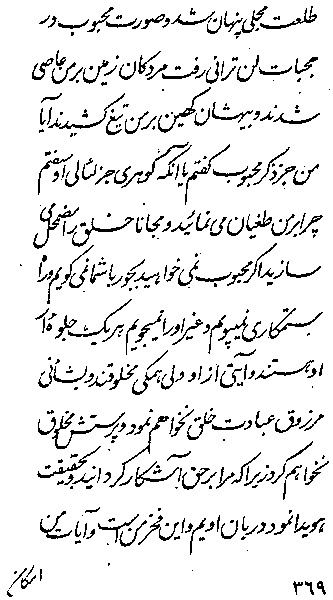 طلعت مجلی پنهان شد و صورت محبوب در
حجبات لن ترانی رفت مردکان زمین بر من عاصی
شدند و بیهشان کهین بر من تیغ کشیدند آیا
من جز ذکر محبوب کفتم یا آنکه کوهری جز لئالی او سفتم
چرا بر من طغیان می نمائید و مجانا خلق را مضمحل می
سازید اکر محبوب نمی خواهید بجور با شما نمی کویم و راه
ستمکاری نمیپویم و غیر او را نمیجویم هر یک جلوهٔ از
او هستند و آیتی از او ولی همکی مخلوقند و بشأنی
مرزوق عبادت خلق نخواهم نمود و پرستش مخلوق
نخواهم کرد زیرا که مرا بر حق آشکار کردانید و بحقیقت
هویدا نمود دربان اویم و این فخر من است و آیات من
امکان
۳۶۹